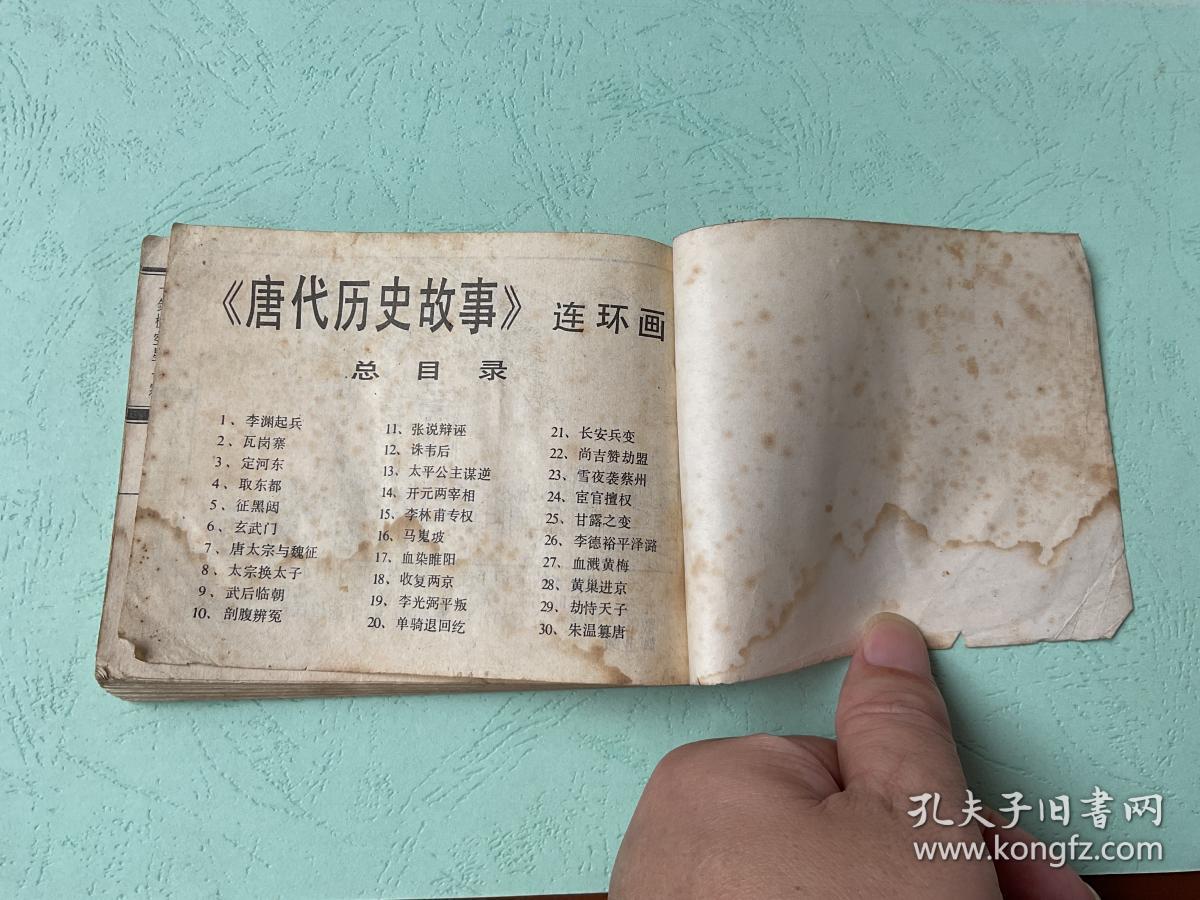 《唐代历史故事》连环画
总目录
1、李渊起兵
2、瓦岗寨
3、定河东
4、取东都
5、征黑闼
6、玄武门
7、唐太宗与魏征
8、太宗换太子
9、武后临朝
10、剖腹辨冤
11、张说辩诬
12、诛韦后
13、太平公主谋逆
14、开元两宰相
15、李林甫专权
16、马嵬坡
17、血染睢阳
18、收复两京
19、李光弼平叛
20、单骑退回纥
21、长安兵变
22、尚吉赞劫盟
23、雪夜袭蔡州
24、宦官擅权
25、甘露之变
26、李德裕平泽潞
27、血溅黄梅
28、黄巢进京
29、劫恃天子
30、朱温篡唐
孔夫子旧书网
www.kongfz.com